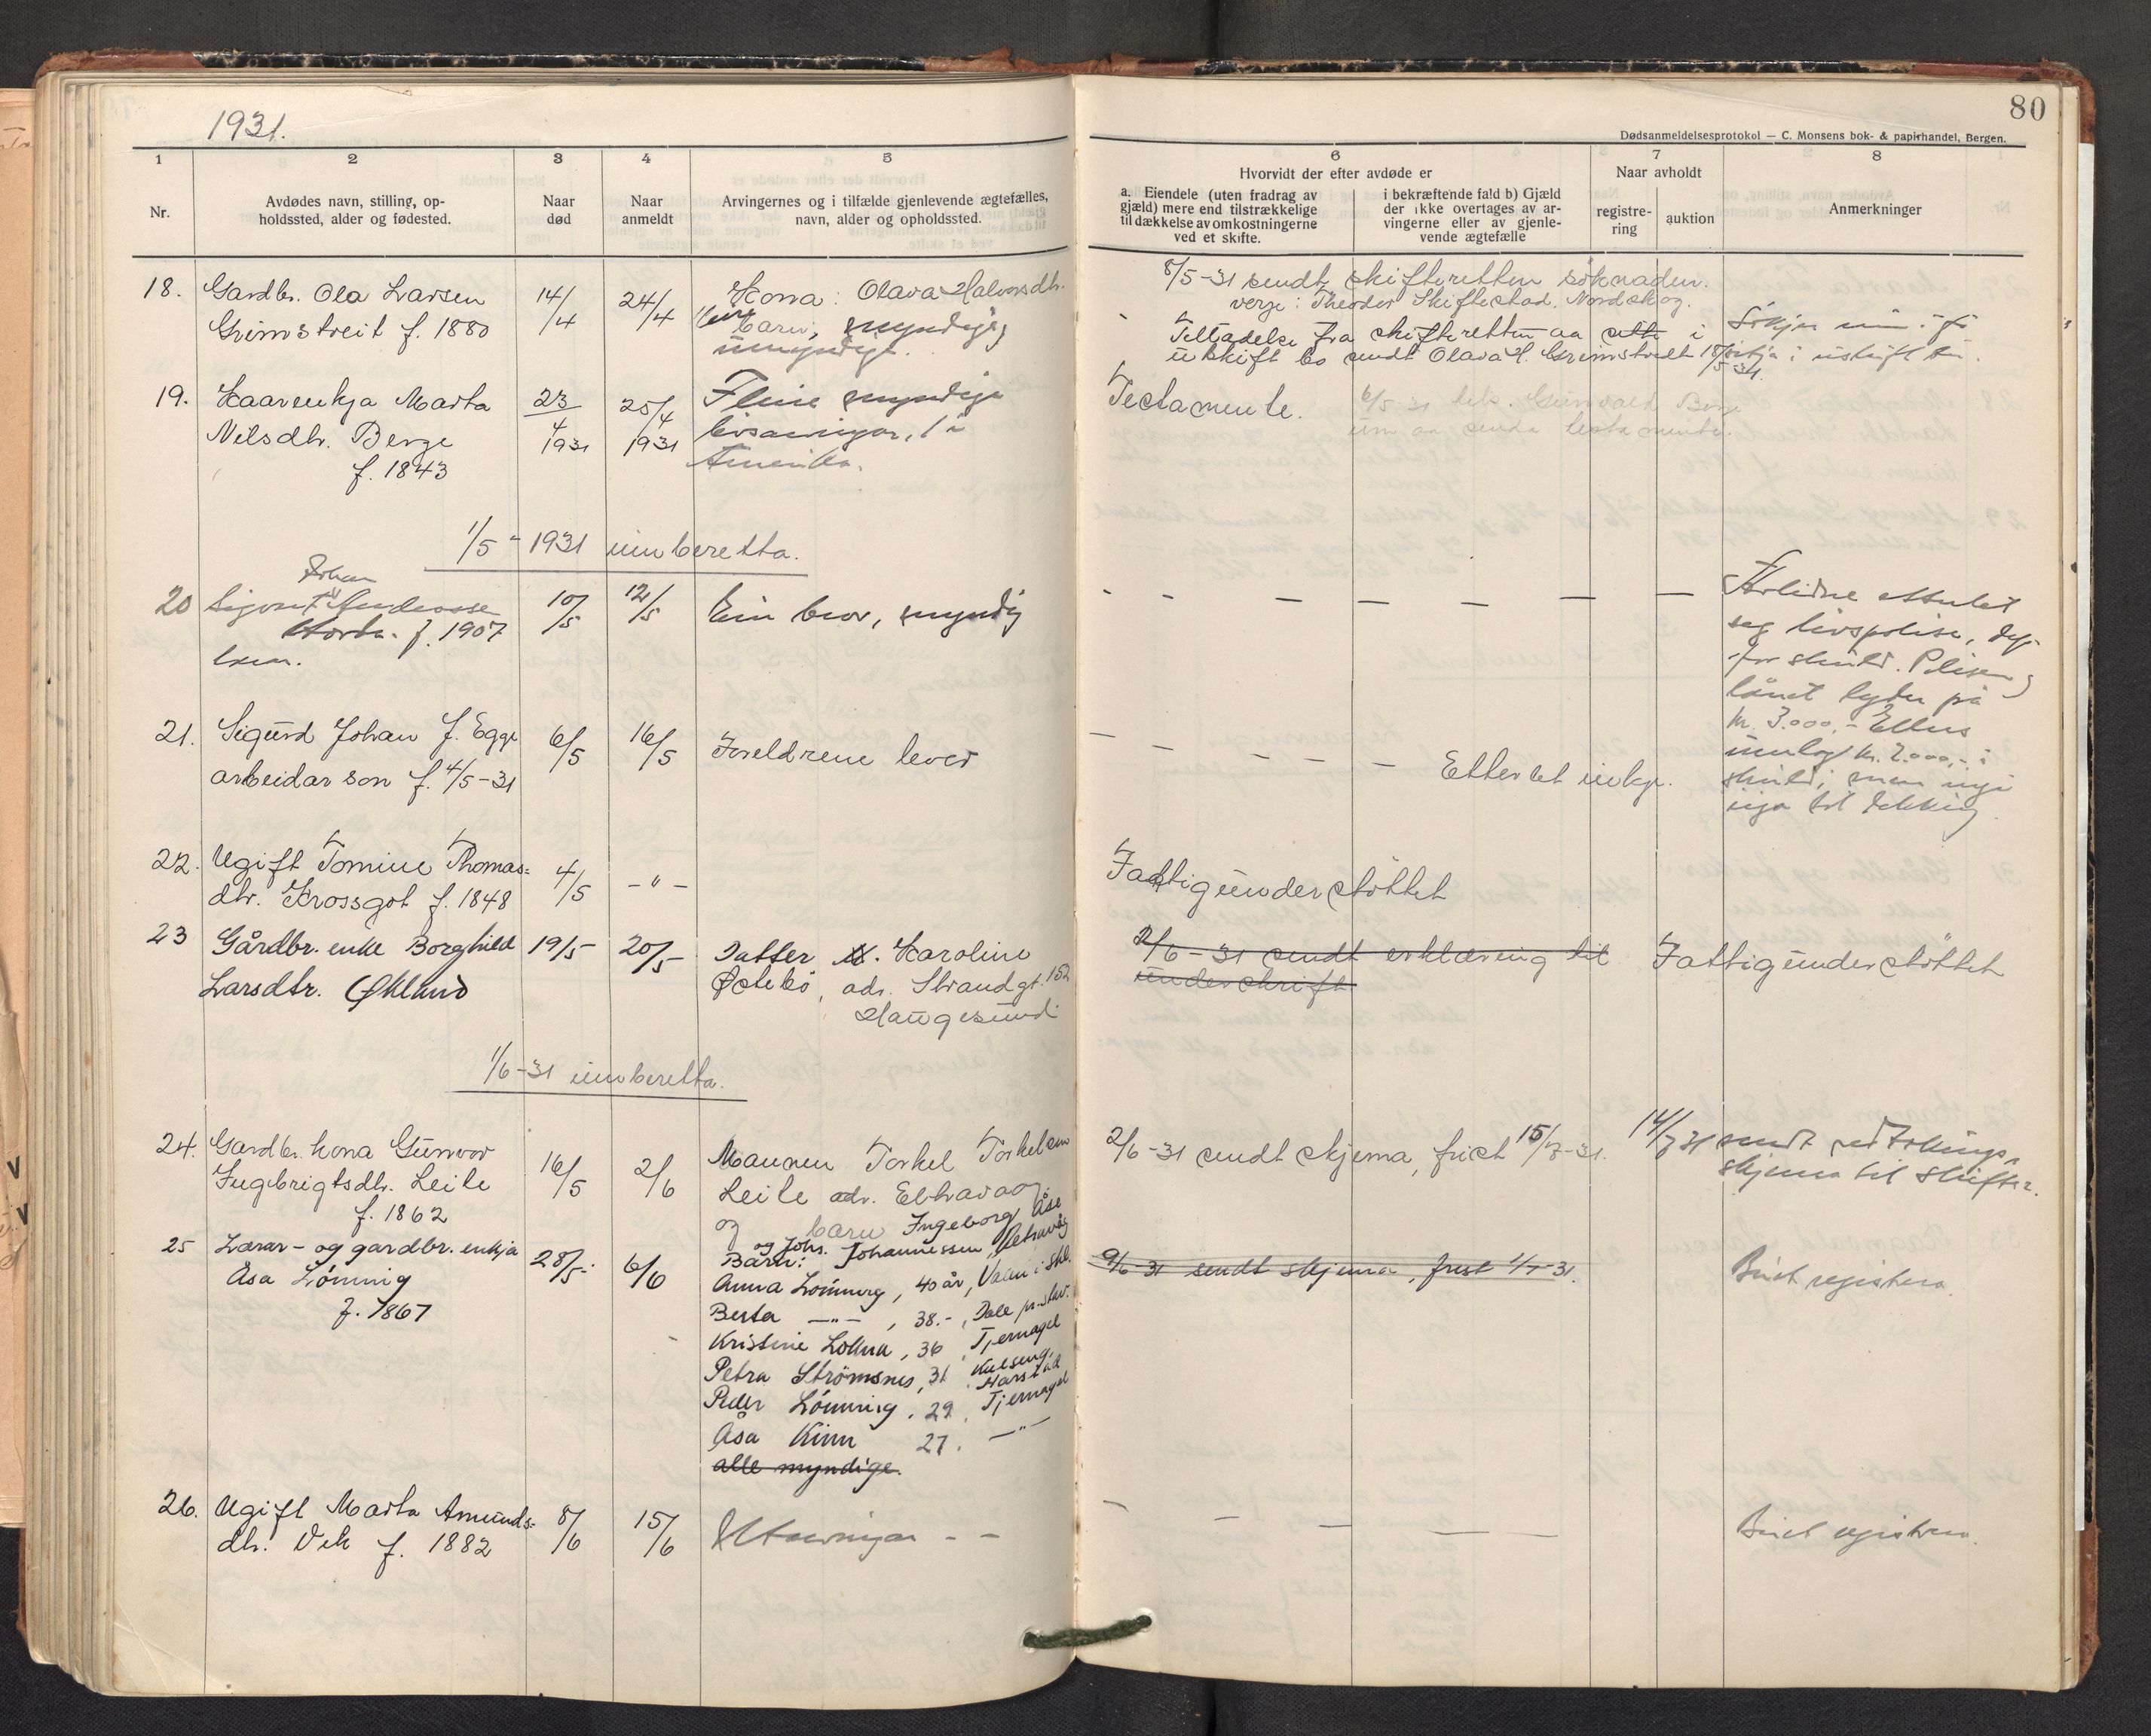 1931.
80
Dødsanmeldelsesprotokol — C. Monsens bok- & papirhandel, Bergen.
1
2
3
4
5
6
7
8
Nr.
Avdødes navn, stilling, op-
holdssted, alder og fødested.
Naar
død
Naar
anmeldt
Arvingernes og i tilfælde gjenlevende ægtefælles,
navn, alder og opholdssted.
Hvorvidt der efter avdøde er
a. Eiendele (uten fradrag av
gjæld) mere end tilstrækkelige
til dækkelse av omkostningerne
ved et skifte.
i bekræftende fald b) Gjæld
der ikke overtages av ar-
vingerne eller av gjenle-
vende ægtefælle
Naar avholdt
registre-
ring
auktion
Anmerkninger
18. Gardbr. Ola Larsen
Grimstveit f. 1880
14/4
24/4
Kona: Olava Halvorsdtr.
barn, myndige
umyndige.
8/5-31 sendt skifteretten søknaden.
verge: Theodor Skiftestad, Nordskog.
Tilladelse fra skifteretten aa sitte i
uskift bo sendt Olava H. Grimstveit 18/5-31.
19. Kaarenkja Marta
Nilsdtr. Berge
f. 1843
23/4
1931
25/4
1931
Fleire myndige
livsarvingar, 1 i
Amerika.
Testamente.
um aa senda testamente.
1/5-1931 innberetta.
20
Johan
Sigvart Anderssen
f. 1907
10/5
12/5
Ein bror, myndig
Avlidne etterlet
seg livspolise,
for skuld. Polisen
lånet lyder på
kr. 3.000,- Ellers
kr. 2.000,- i
skuld; men
til dekking
21. Sigurd Johan J. Egge
arbeidar son f. 4/5-31
6/5
16/5
Foreldrene lever
Etterlet inkje.
22. Ugift Tomine Thomas-
dtr. Krossgot f. 1848
4/5
-"-
Fattigunderstöttet
23 Gårdbr. enke Borghild
Larsdtr. Økland
19/5
20/5
Datter M. Karoline
Østebö, adr. Strandgt. 152
Haugesund
2/6-31 sendt erklæring til
underskrift.
Fattigunderstöttet
1/6-31 innberetta.
24. Gardbr. kona Gunvor
Ingebrigtsdtr. Leite
f. 1862
16/5
2/6
Mannen Torkel Torkelsen
Leite adr. Ebbavaag.
og barn Ingeborg, Åse
og Johs. Johannessen,
2/6-31 sendt skjema, frist 15/7-31.
14/7 31 sendt
skjema til skifter.
25 Lærar- og gardbr. enkja
Åsa Lönning
f. 1867
28/5
6/6
Barn:
Anna Lönning, 40 år,
Berta -"-, 38.-, Dale pr. Hav.
Kristine Lokna, 36, Tjernagel
Petra Strömsnes, 31
Harstad
Peder Lönning, 29, Tjernagel
Åsa Kinn 27. -"-
alle myndige.
9/6-31 sendt skjema, frist 1/7-31.
Buet registrera.
26. Ugift Marta Amunds-
dtr. Vik f. 1882
8/6
15/6
Utarvingar - -
Buet registrera.